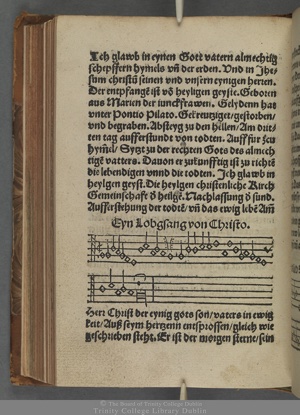 Ich glawb in eynen Gott vatern almechtig
schepffern hymels vñ der erden. Vnd in Jhe-
sum christū seinen vnd vnsern eynigen herren.
Der entpfangē ist vō heyligen geyste. Geboren
aus Marien der iunckfrawen. Gelydenn hat
vnter Pontio Pilato. Gekreutziget/gestorben/
vnd begraben. Absteyg zu den hellen/Am drit-
ten tag aufferstundt von todten. Auffur seu
hymel/ Sytzt zu der rechten Gots des almech
tigē vatters. Dauon er zukunfftig ist zu richtē
die lebendigen vnnd die todten. Ich glawb in
heylgen geyst. Die heylgen christenliche Kirch
Gemeinschafft d̄ heilgē. Nachlassung d̄ sund.
Aufferstehung der todtē/ vñ das ewig lebē Amē
Eyn Lobgsang von Christo.
Herr Christ der eynig gots son/vaters in ewig
keit/Auß seym hertzenn entsprossen/gleich wie
geschrieben steht. Er ist der morgen sterne/sein
© The Board of Trinity College Dublin
Trinity College Library Dublin